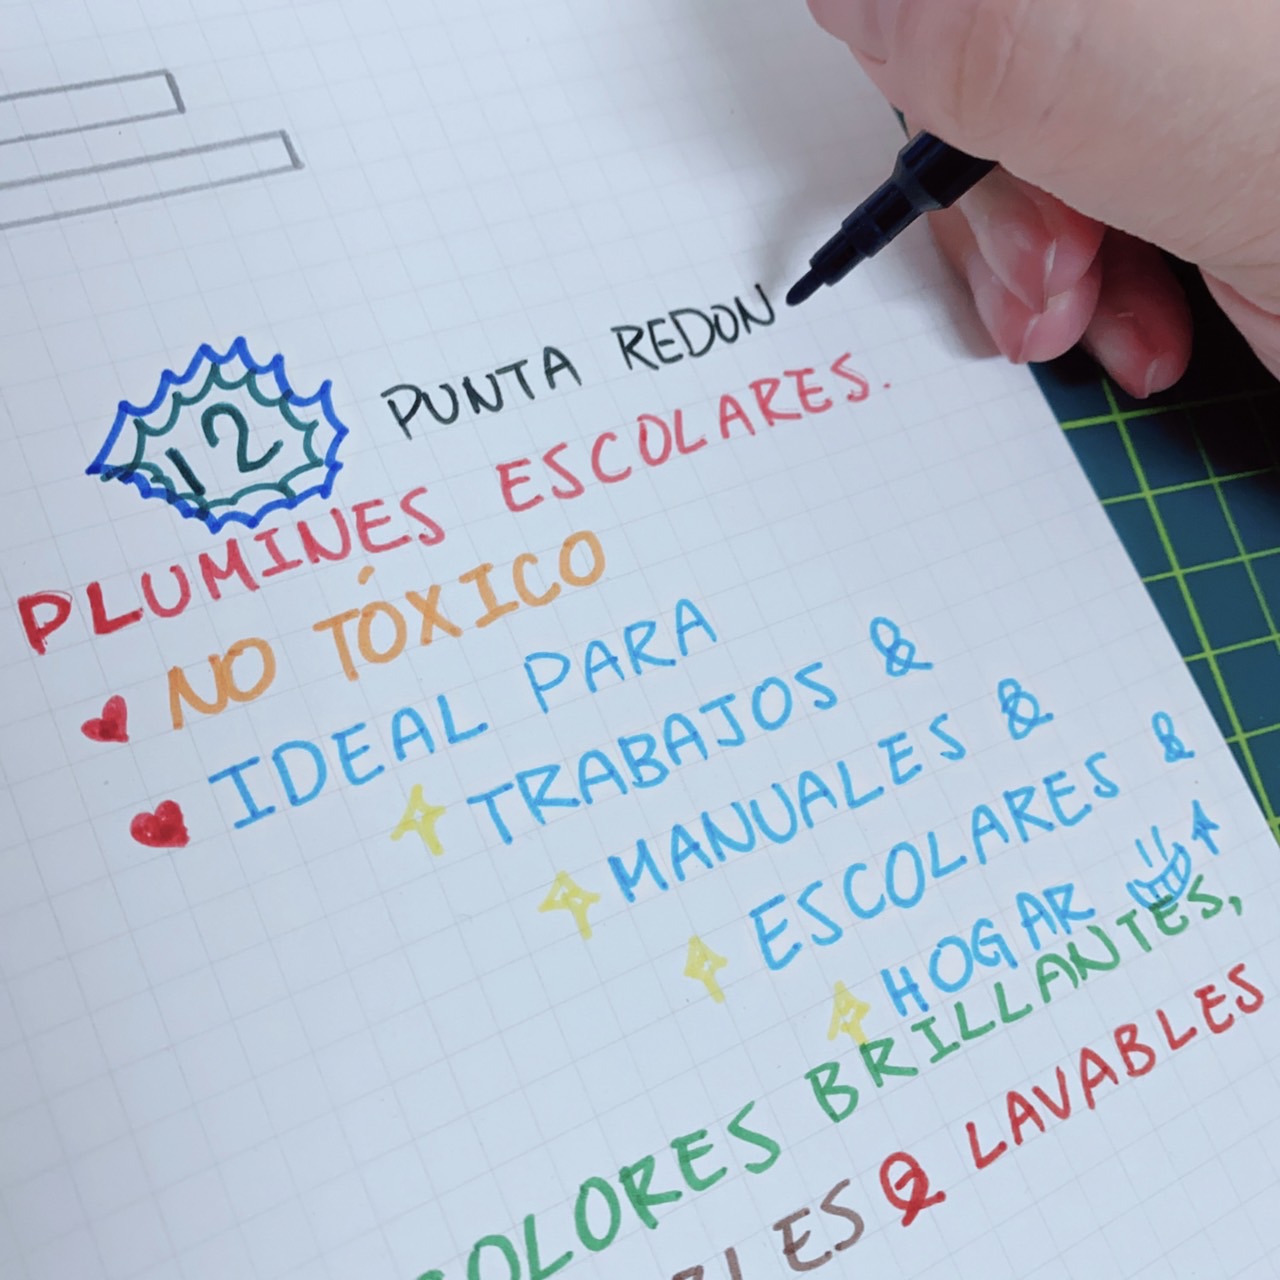 12
PUNTA REDON
PLUMINES ESCOLARES.
NO TÓXICO
IDEAL PARA
TRABAJOS &
MANUALES &
ESCOLARES &
HOGAR
OLORES BRILLANTES,
LES & LAVABLES